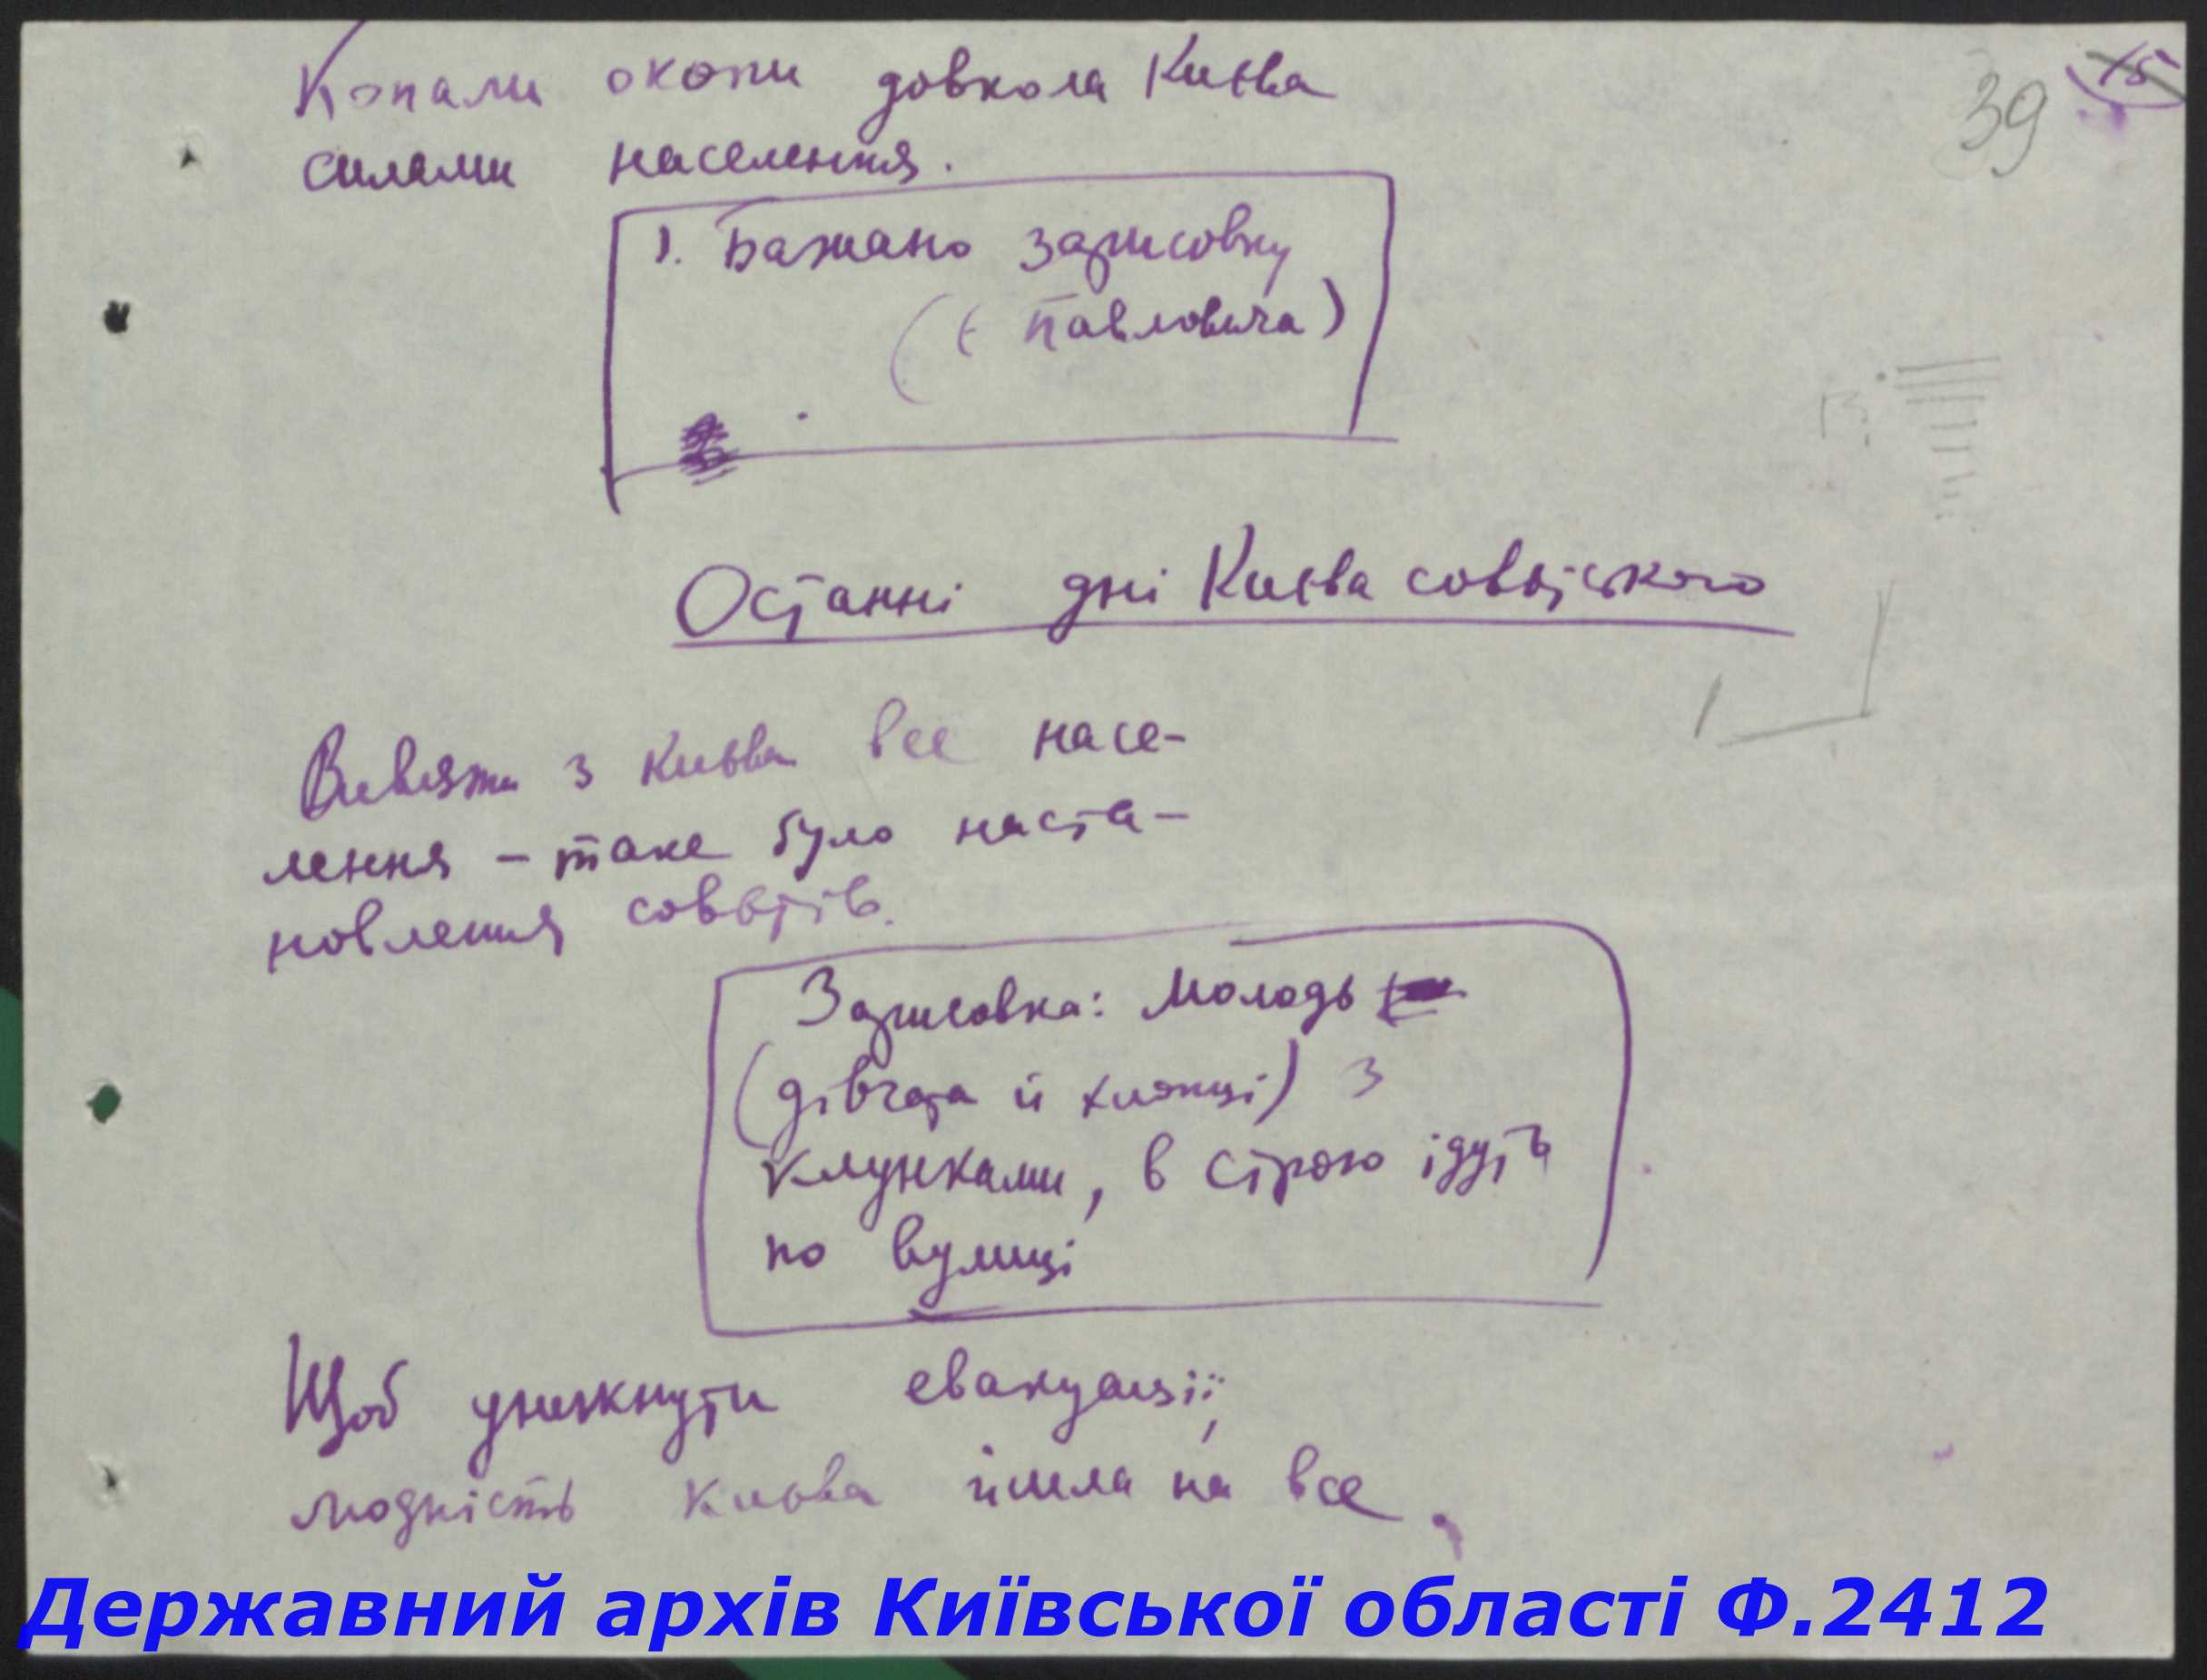 39
15
Копали окопи довкола Києва
силами населення.
1. Бажано зарисовку
(є Павловича)
Останні дні Києва совєтського
Вивезти з Києва все насе-
лення – таке було наста-
новлення совєтів.
Зарисовка: Молодь
(дівчата й хлопці) з
клунками, в строю ідуть
по вулиці
Щоб уникнути евакуації,
людність Києва ішла на все.
Державний архів Київської області Ф.2412